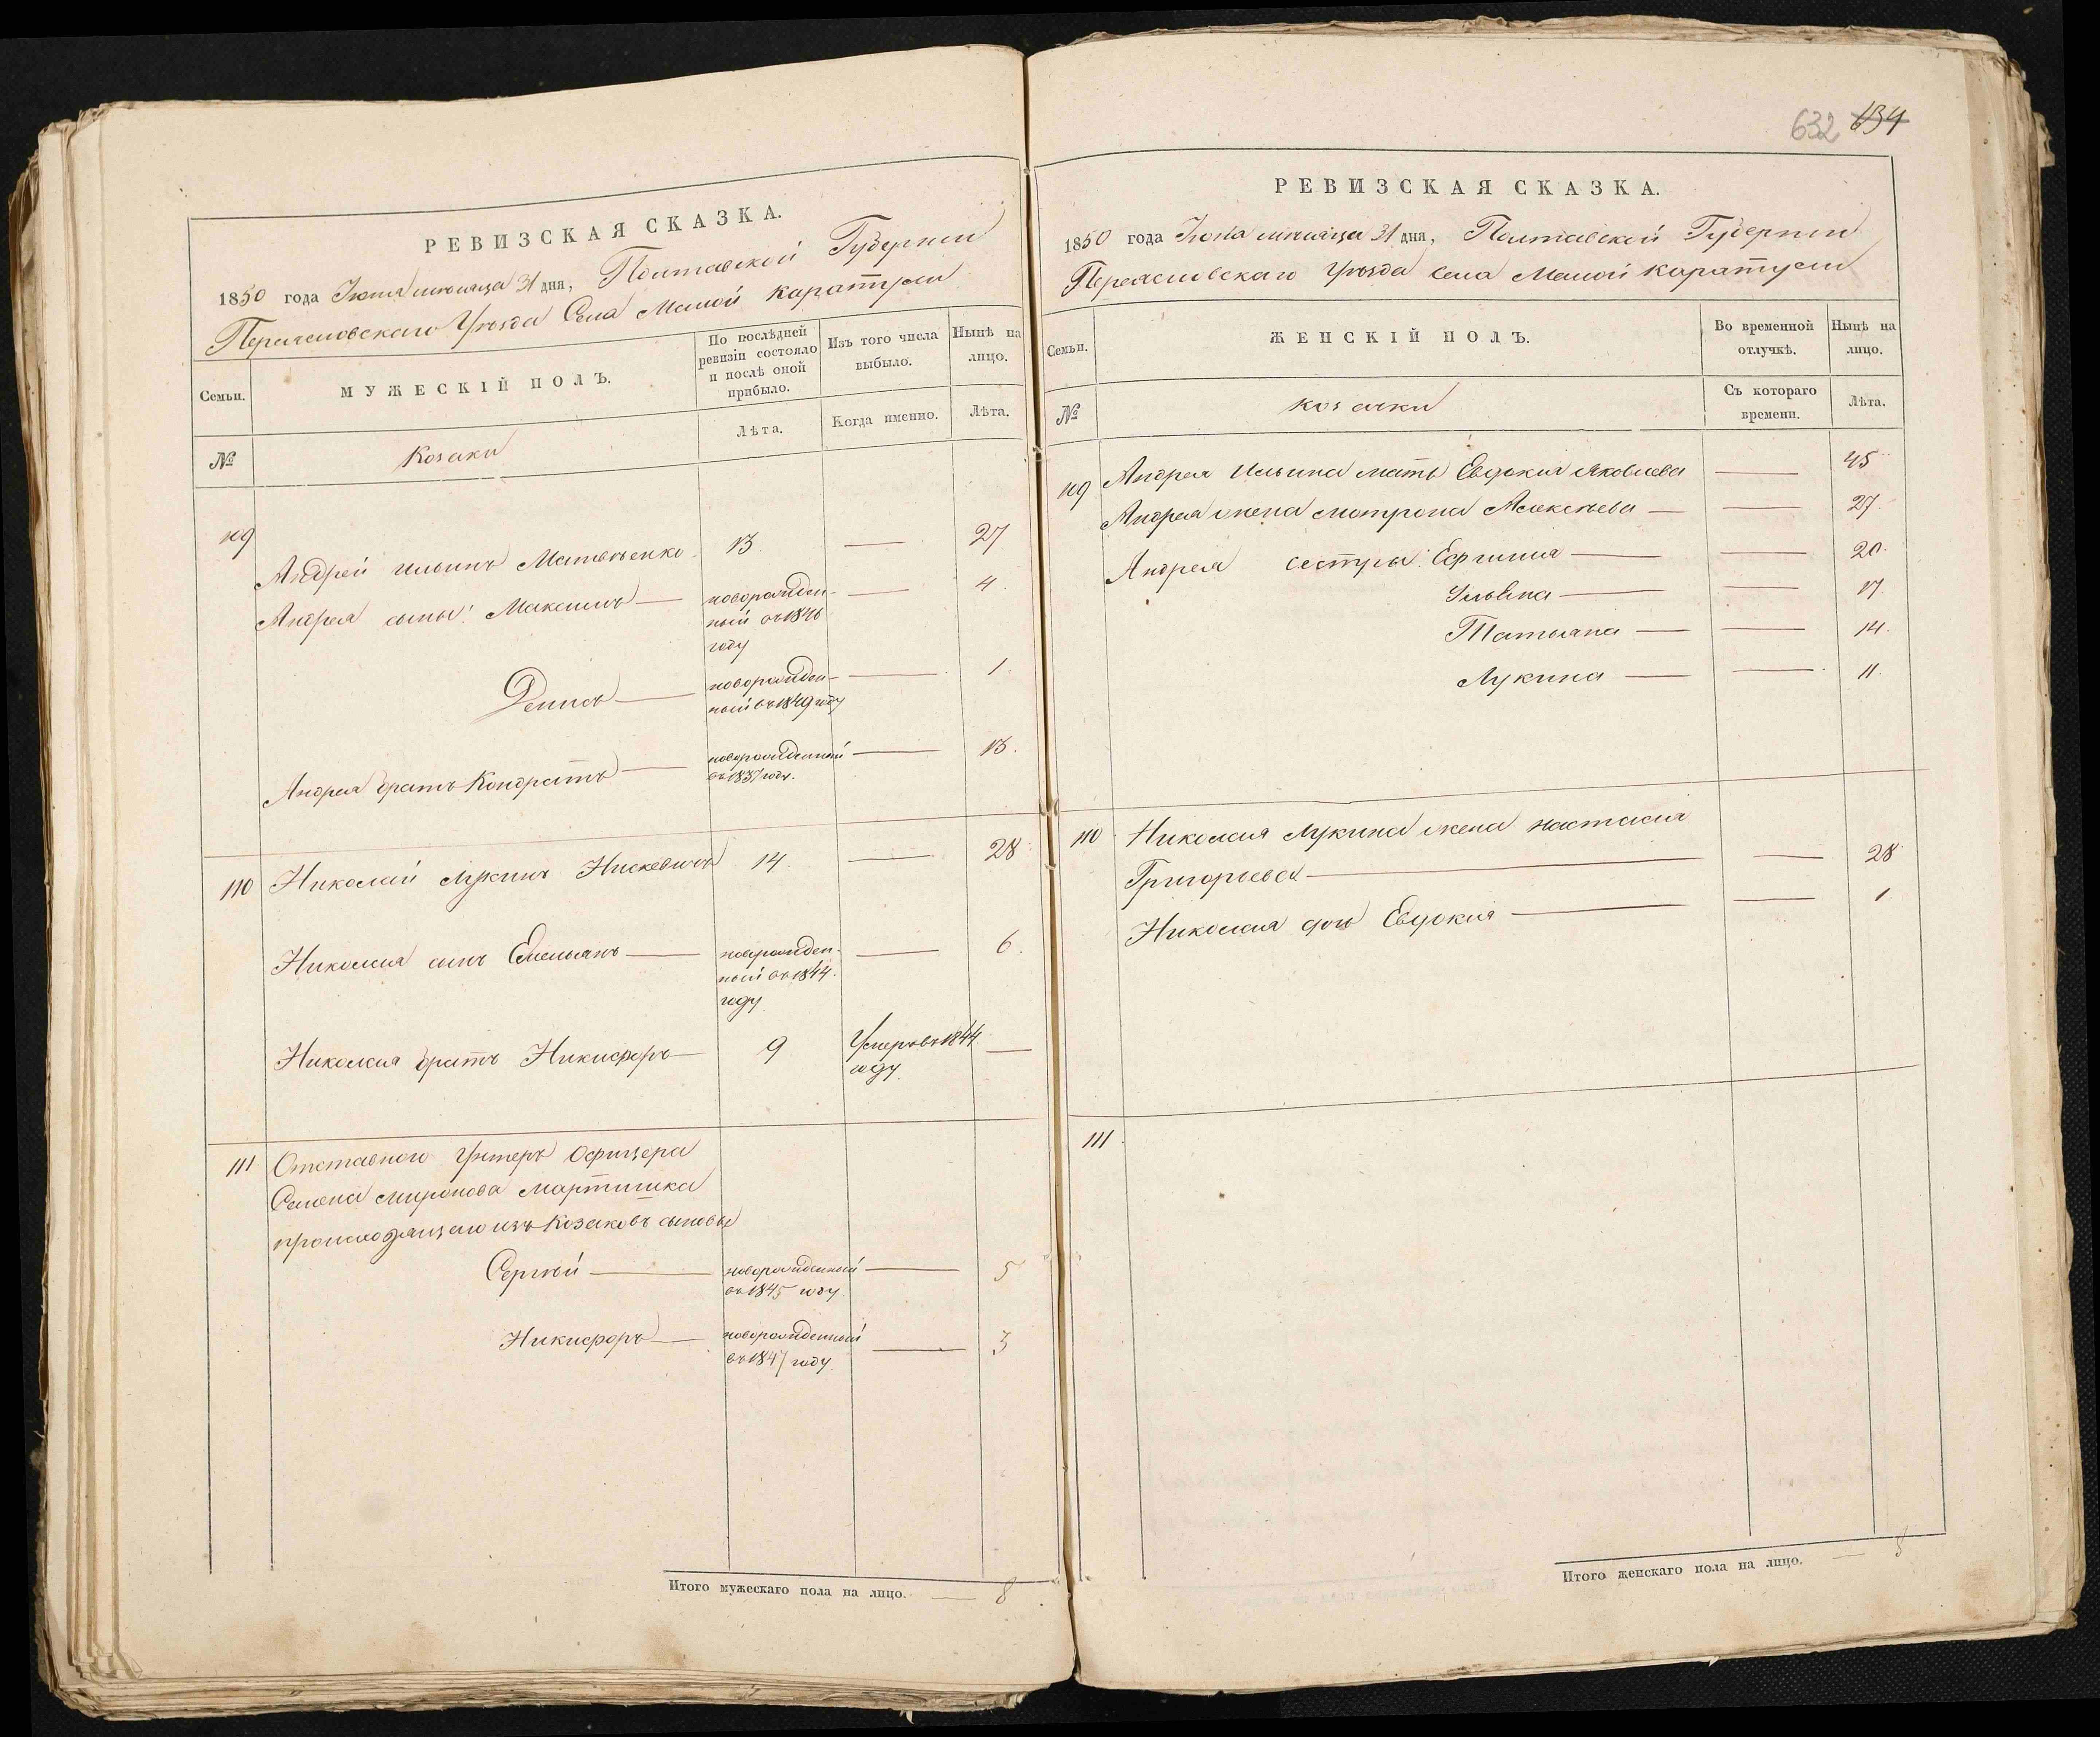 РЕВИЗСКАЯ СКАЗКА.
1850 года Іюля мѣсяца 31 дня, Полтавской Губерніи
Переяславскаго Уѣзда Села Малой Каратули
Семьи.
МУЖЕСКІЙ ПОЛЪ.
По послѣдней
ревизіи состояло
и послѣ оной
прибыло.
Изъ того числа
выбыло.
Нынѣ на
лицо.
№
Козаки
Лѣта.
Когда именно.
Лѣта.
109
Андрей Ильинъ Матвѣенко 13 — 27
Андрея сыны: Максимъ — новорожден-
ный въ 1846
году — 4
Денисъ — новорожден-
ный въ 1849 году — 1
Андрея братъ Кондратъ — новорожденный
въ 1837 году. — 13.
110 Николай Лукинъ 14. — 28
Николая сынъ Емельянъ — новорожден-
ный въ 1844.
году — 6.
Николая братъ Никифоръ — 9 Умеръ въ 1844
году. —
111 Отставного Унтеръ Офицера
Семена Миронова Мартишка
происходящего изъ Козаковъ сыновья
Сергѣй — новорожденный
въ 1845 году — 5
Никифоръ — новорожденный
въ 1847 году. — 3
Итого мужескаго пола на лицо. — 8
632 634
РЕВИЗСКАЯ СКАЗКА.
1850 года Іюля мѣсяца 31 дня, Полтавской Губерніи
Переяславскаго Уѣзда Села Малой Каратули
Семьи.
ЖЕНСКІЙ ПОЛЪ.
Во временной
отлучкѣ.
Нынѣ на
лицо.
№
козачки
Съ котораго
времени.
Лѣта.
109 Андрея Ильина мать Евдокия Яковлева — 45
Андрея жена Мотрона Алексѣева — — 27
Андрея сестры: Ефимия — — 20
— — 17.
Татьяна — — 14.
Лукина — — 11.
110 Николая Лукина жена Настасия
Григорьева — — 28
Николая дочь Евдокия — — 1
111
Итого женскаго пола на лицо. — 8